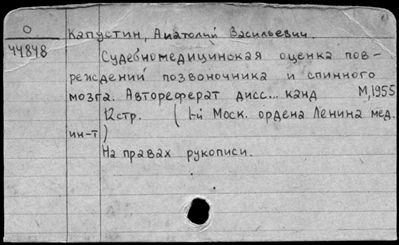 О
44848
Капустин, Анатолий Васильевич.
Судебномедицинская оценка пов-
реждений позвоночника и спинного
мозга. Автореферат дисс... канд М,1955
12стр. (1-й Моск. ордена Ленина мед.
ин-т)
На правах рукописи.